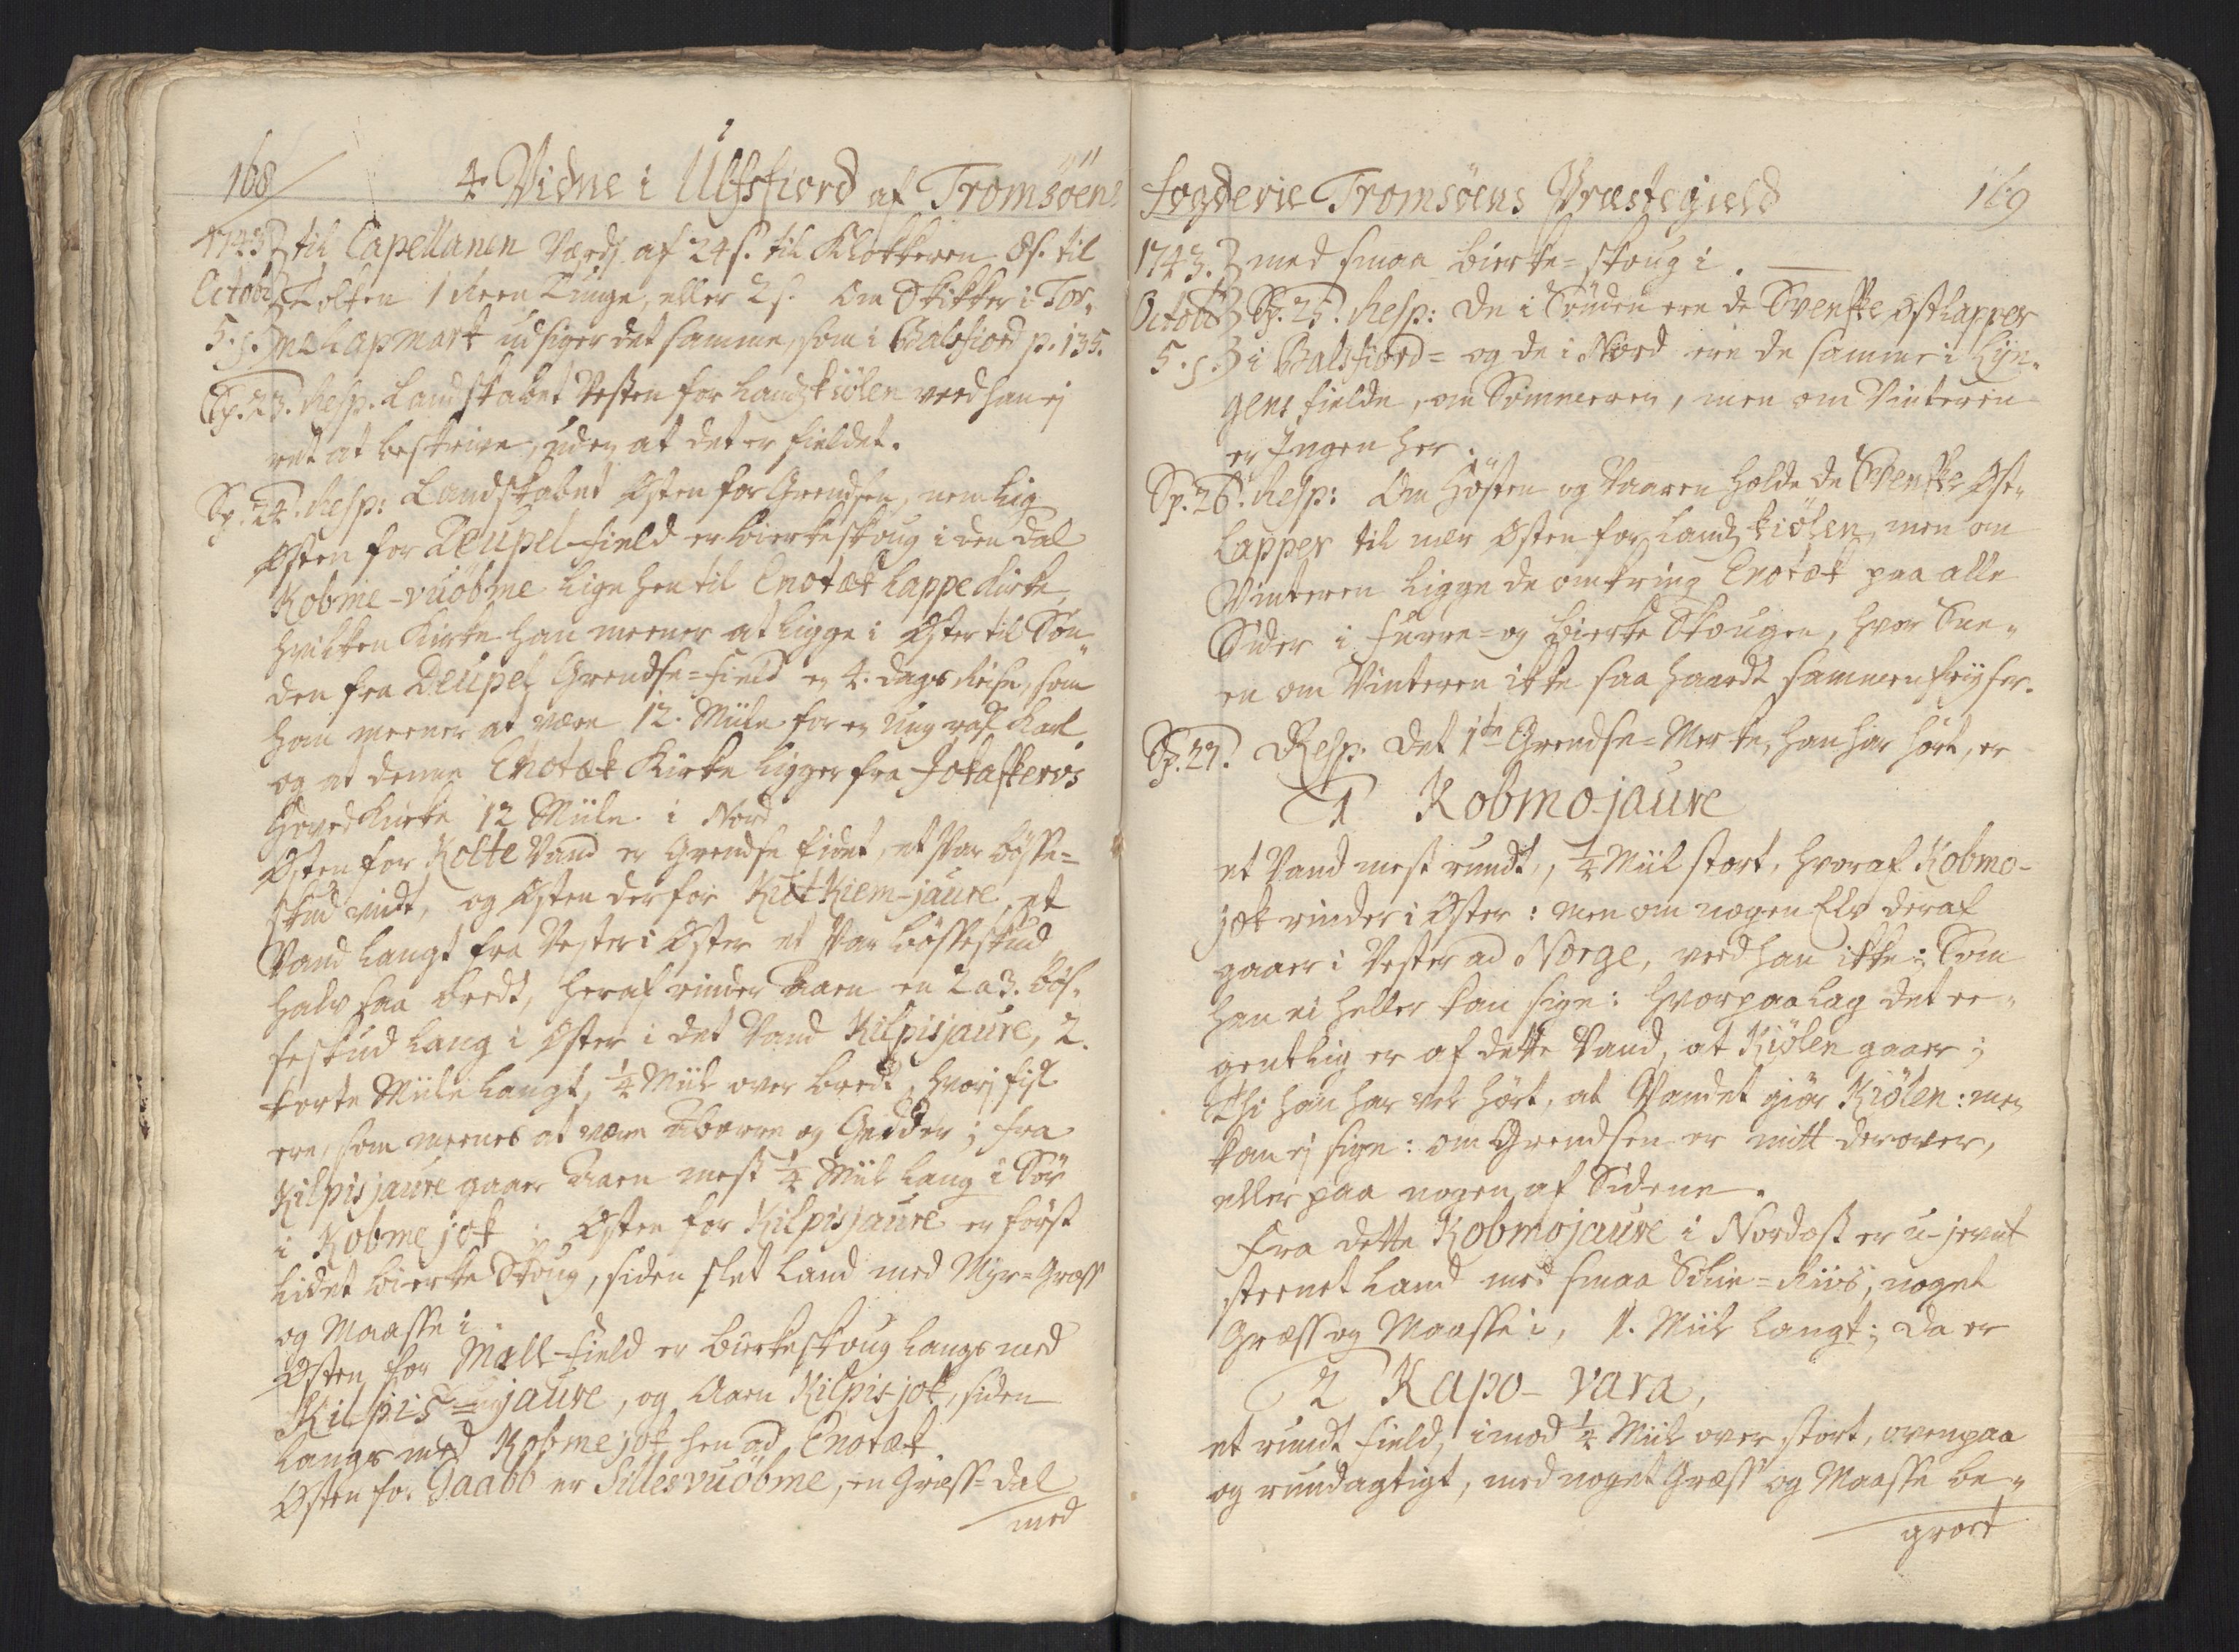 168
4 Vidne i Ulfsfiord af Tromsöens
1743 til Capellanen Værdj af 24 s. til Klokkeren 8 s. til
Octobr Tolken 1 Reen Tunge, eller 2 s. Om Skikker i Tor-
5. s. ne Lapmark udsiger det samme, som i Balsfiord p. 135.
Sp. 23. Resp. Landskabet Vesten for Landz kiölen veed han ej
ret at beskrive, uden at det er fieldet.
Sp. 24. Resp: Landskabet Østen for Grendsen, nemlig
Østen for Deupel-field er birkeskoug i den dal
Kobme-vuöbme lige hen til Enotæk Lappe Kirke,
hvilken Kirke han meener at ligge i Øster til Sön-
den fra Deupel Grendse-field en 4. dags Reise, som
han meener at være 12. Miile for en ung rask Karl
og at denne Enotæk Kirke ligger fra Jokaskervs
Hoved Kirke 12 Miile i Nord
Østen for Kolte Vand er Grendse Eidet, et Par bösse-
skud viidt, og Østen derfor Kutkiem-jaure, et
Vand langt fra Vester i Øster et Par bösseskud
halv saa bredt, heraf rinder Aaen en 2 a 3. bös-
seskud lang i Øster i det Vand Kilpisjaure, 2.
korte Miile langt, 1/4 Miil over bredt, hvorj fisk
ere, som meenes at være Aborre og Gedder; fra
Kilpisjaure gaaer Aaen mest 1/4 Miil lang i Sör
i Kobmejok; Østen for Kilpisjaure er först
lidet bierke Skoug, siden slet Land med Myr-Græss
og Maasse i.
Østen for Mall-field er birkeskoug langs med
Kilpis-jaure, og Aaen Kilpis-jok, siden
langs med Kobmejok hen ad Enotæk.
Østen for Gaabb er Sillesvuöbme, en Græss-dal
med
Fogderie Tromsöens Præstegield
169
1743. med smaa bierke-skoug i.
Octobr Sp. 25. Resp: De i Sönden ere de Svenske Østlapper
5. s. i Balsfiord- og de i Nord ere de samme i Lyn-
gens fielde, om Sömmeren, men om Vinteren
er Ingen her.
Sp. 26. Resp: Om Hösten og Vaaren holde de Svenske Øst-
Lapper til nær Østen for Landz kiölen, men om
Vinteren ligge de omkring Enotæk paa alle
Sider i furre- og bierke Skougen, hvor Snee-
en om Vinteren ikke saa haardt sammenfryser.
Sp. 27. Resp. Det 1ste Grendse-Merke, han har hört, er
1 Kobmo-jaure
et Vand mest rundt, 1/4 Miil stort, hvoraf Kobmo-
jok rinder i Øster: men om nogen Elv deraf
gaaer i Vester ad Norge, veed han ikke; Som
han ei heller kan sige: hvorpaa lag det ee-
gentlig er af dette Vand, at Kiölen gaaer;
Thi han har vel hört, at Vandet giör Kiölen: men
kan ej sige: om Grendsen er mitt derover,
eller paa nogen af Sidene.
Fra dette Kobmojaure i Nordost er u-jevnt
steenet Land med smaa Silie-Riis, noget
Græss og Maasse i, 1. Miil langt; da er
2 Kapo-vara,
et rundt field, imod 1/4 Miil over stort, ovenpaa
og rundagtigt, med noget Græss og Maasse be-
groet